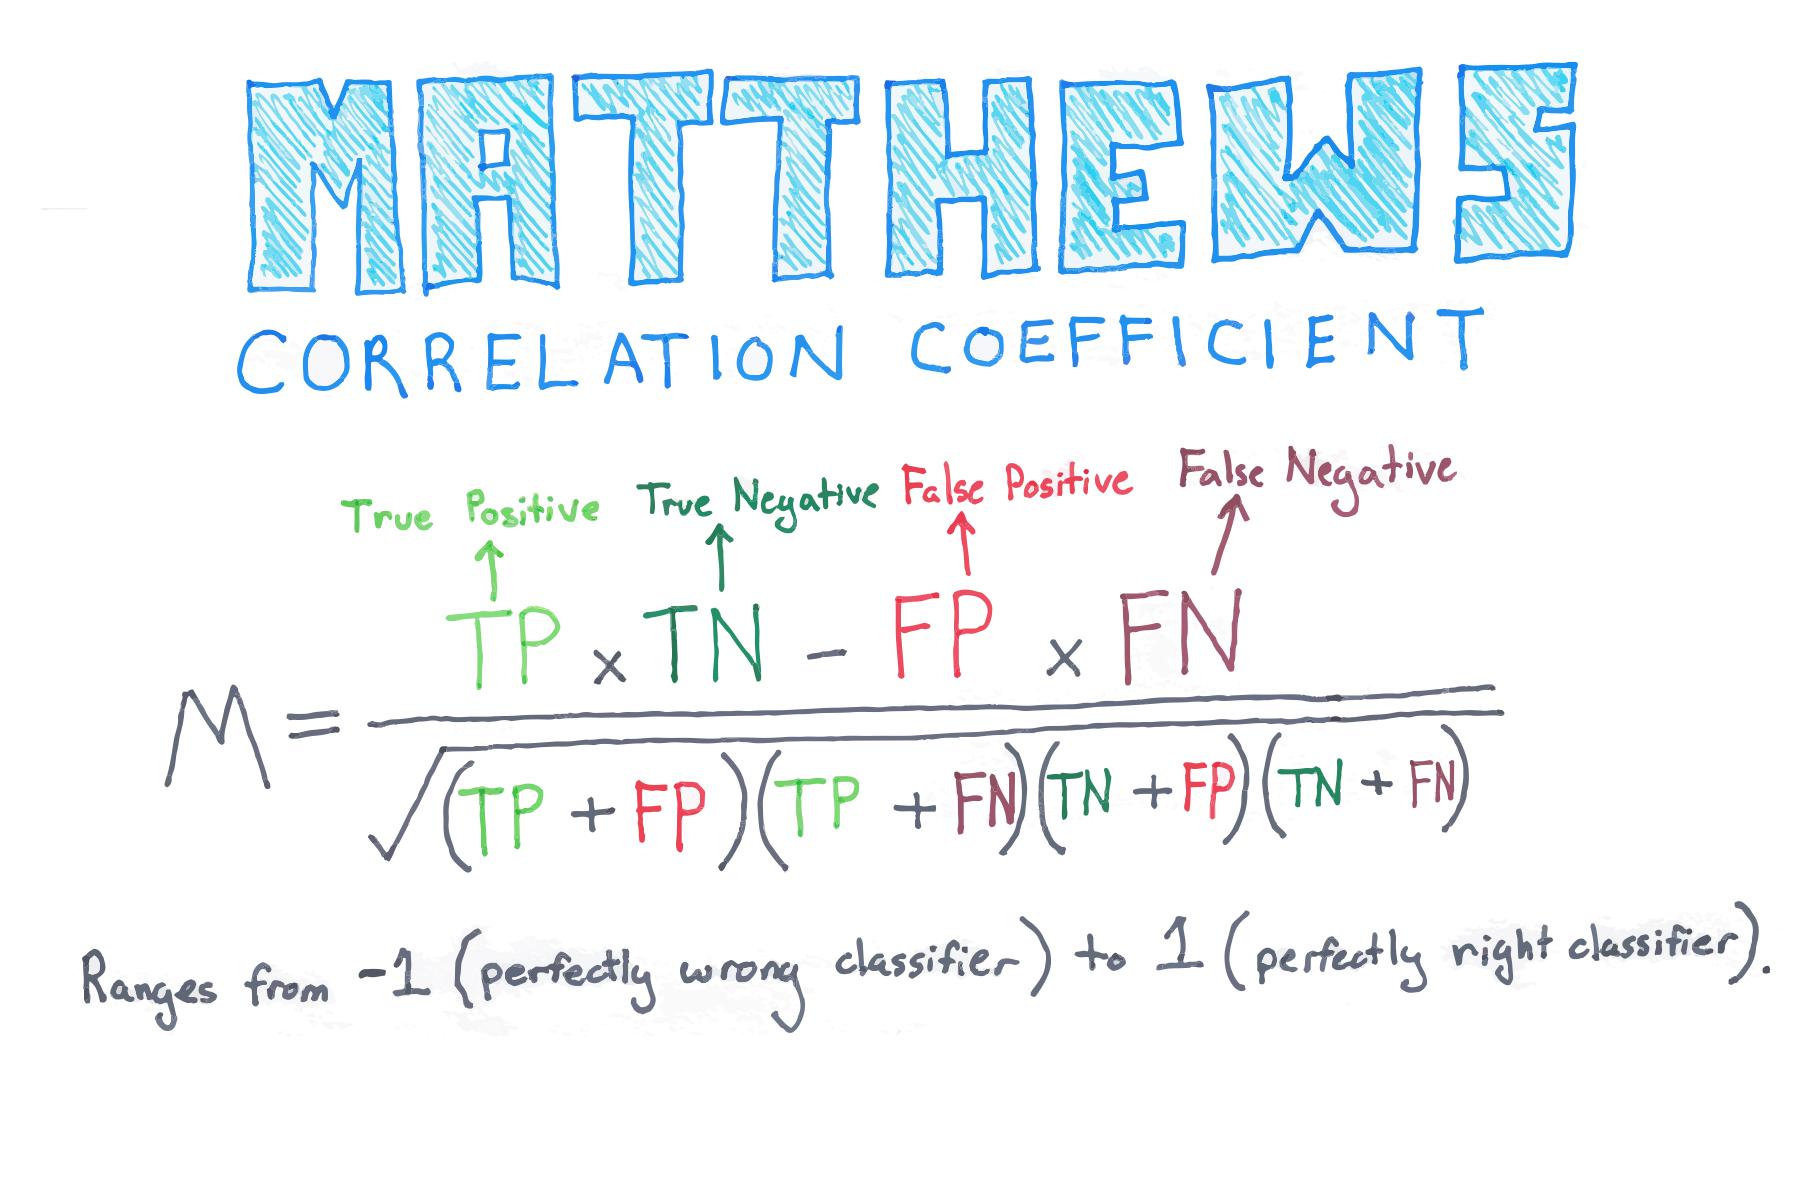 MATTHEWS
CORRELATION COEFFICIENT
True Positive True Negative False Positive False Negative
TP x TN - FP x FN
M =
√(TP + FP)(TP + FN)(TN + FP)(TN + FN)
Ranges from -1 (perfectly wrong classifier) to 1 (perfectly right classifier).